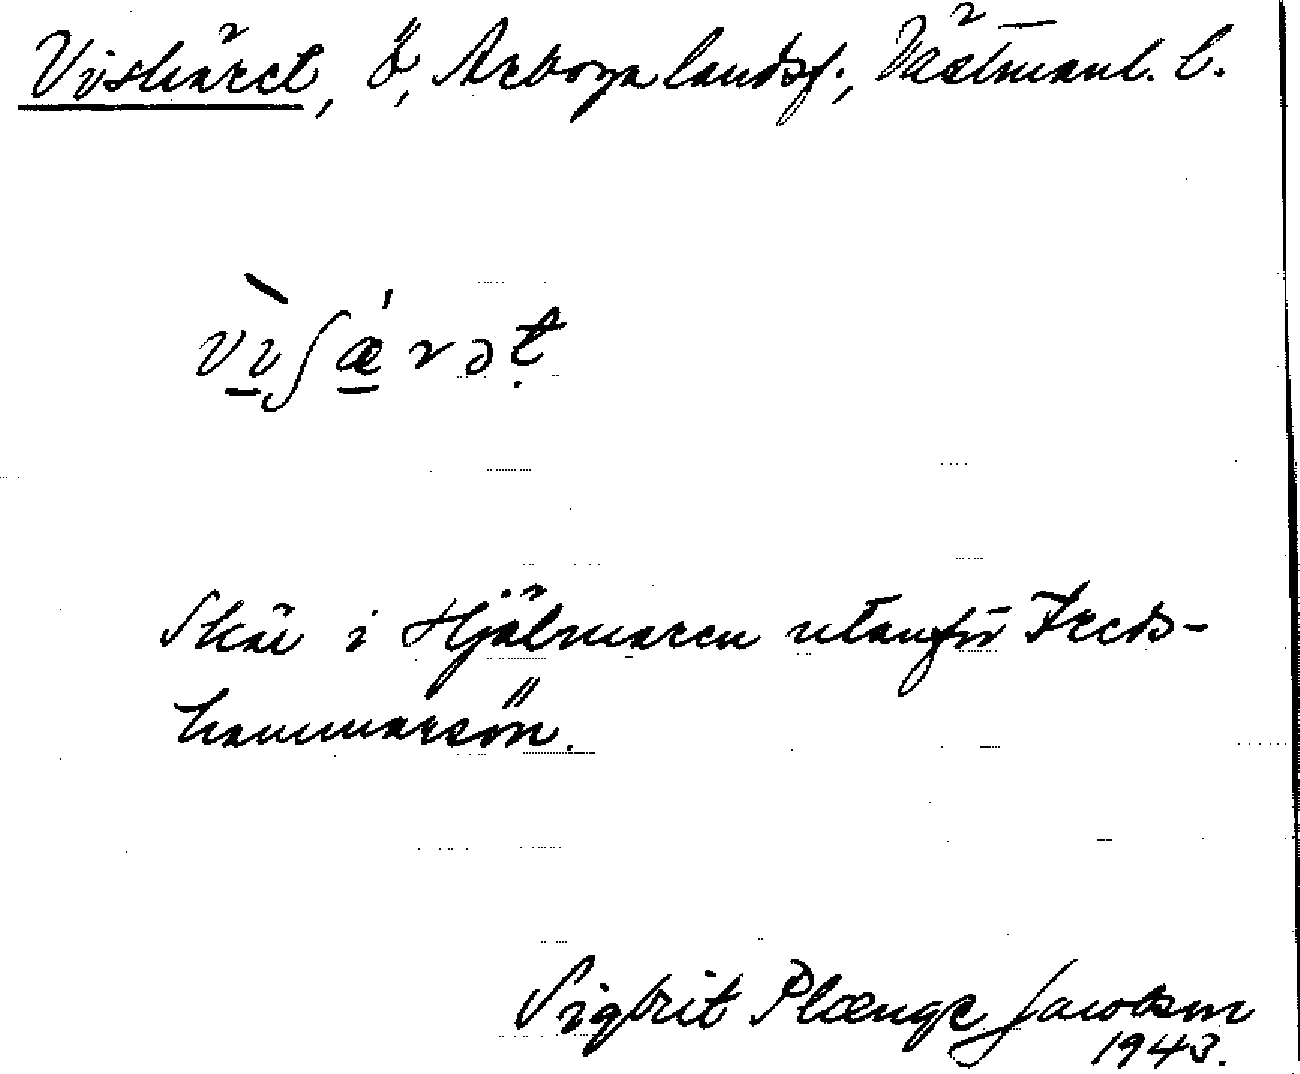 Viskäret, Ö, Arboga landsf., Västmanl. l.
vi̠ʃæ̠rət
Skär i Hjälmaren utanför Freds-
hammarsön.
Sigbrit Plænge Jacobson
1943.